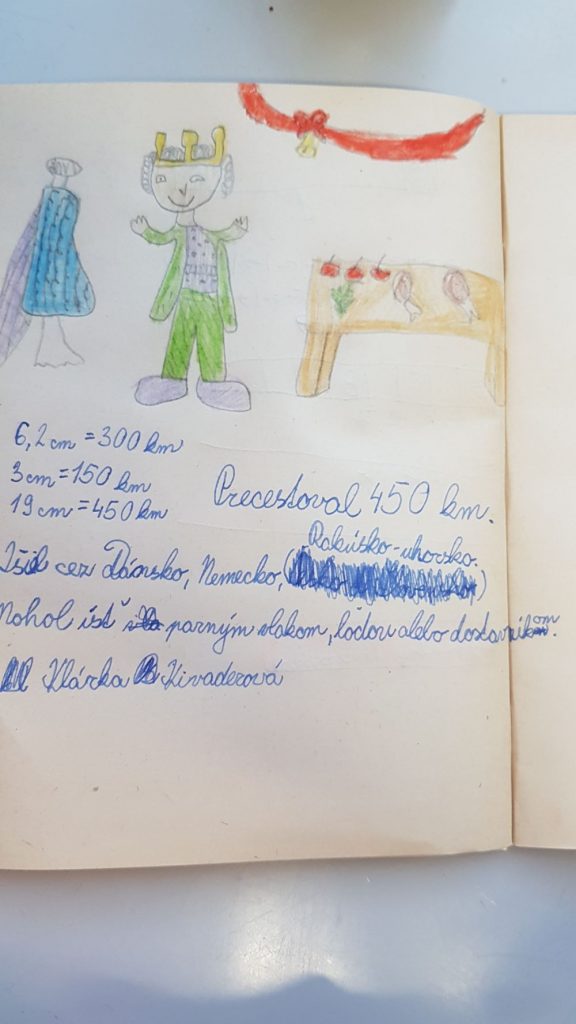 6,2 cm = 300 km
3 cm = 150 km
19 cm = 450 km
Precestoval 450 km.
Rakúsko-uhorsko.
Išiel cez Dánsko, Nemecko, ( )
Mohol ísť parným vlakom, loďou alebo dostavníkom.
Klárka Kivaderová